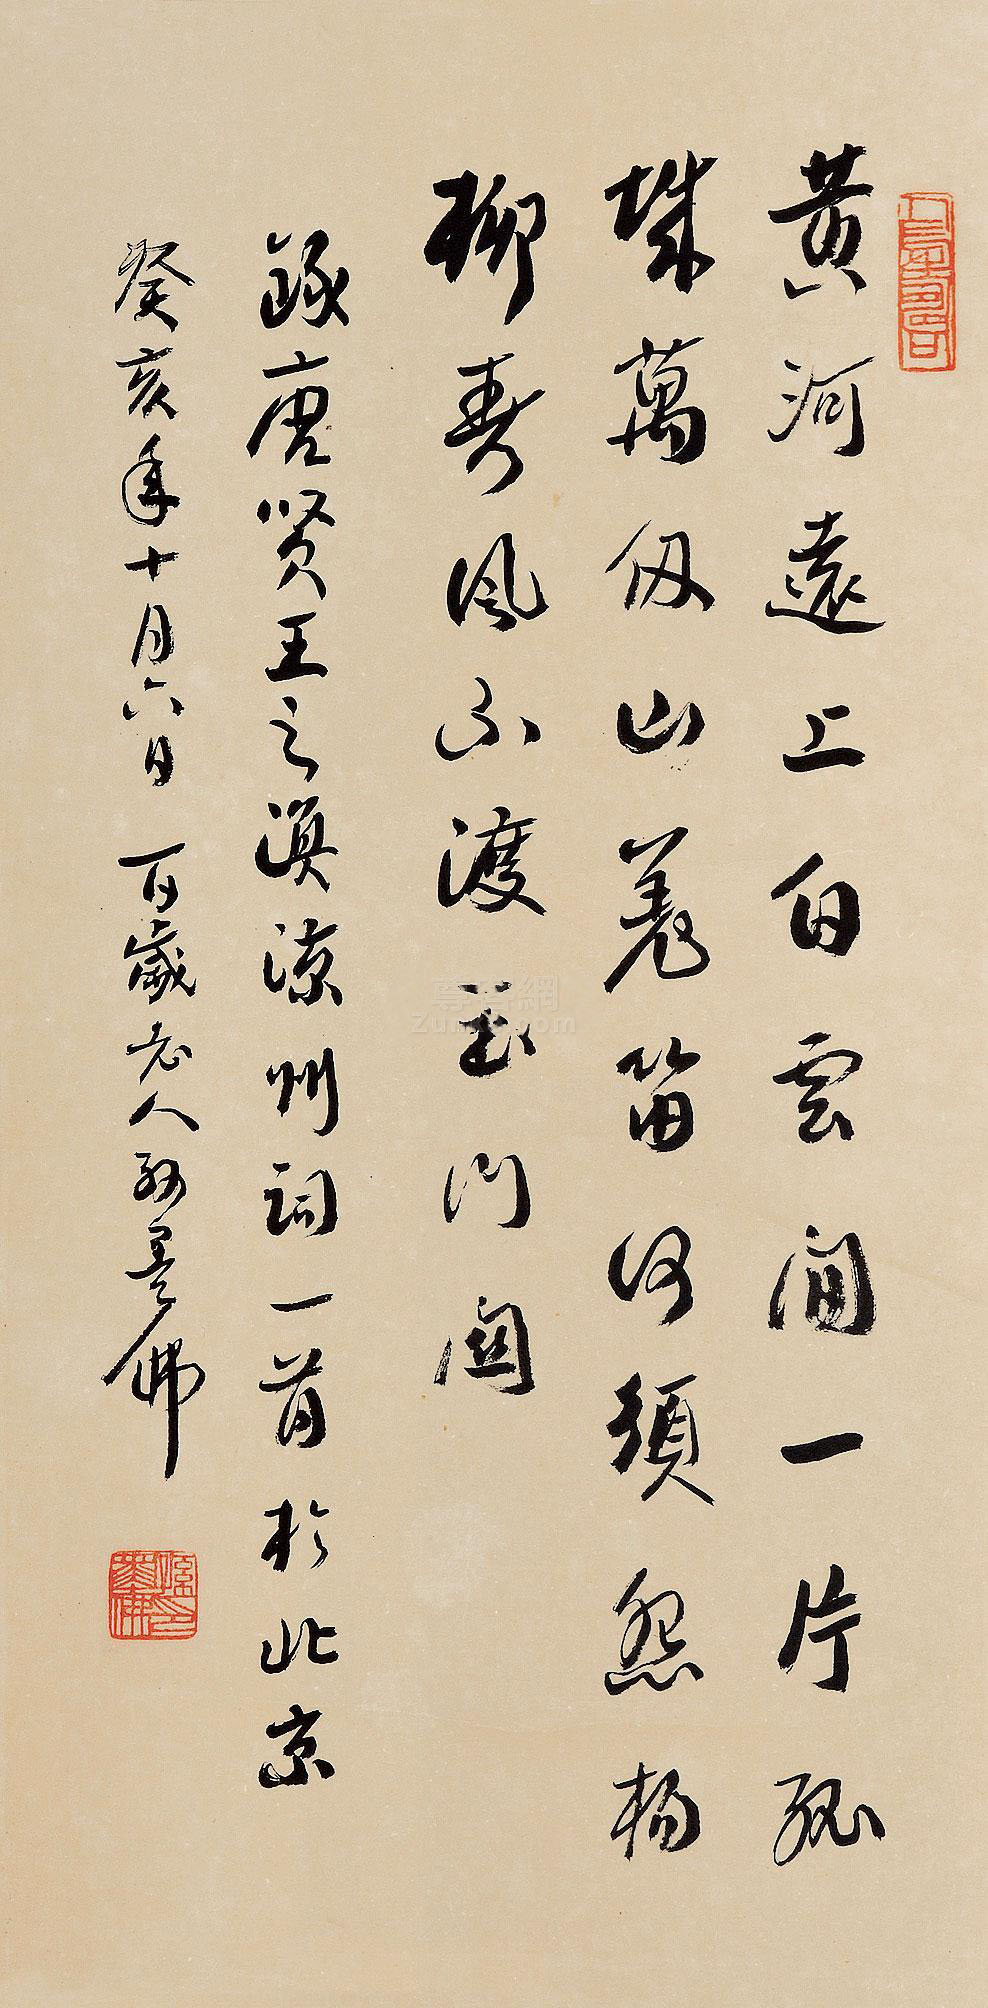 黄河遠上白雲間一片孤
城萬仞山羌笛何須怨楊
柳春風不渡玉門関
録唐賢王之渙涼州詞一首於北京
癸亥年十月六日 百歲老人孫墨佛
孫墨佛印
尊客網